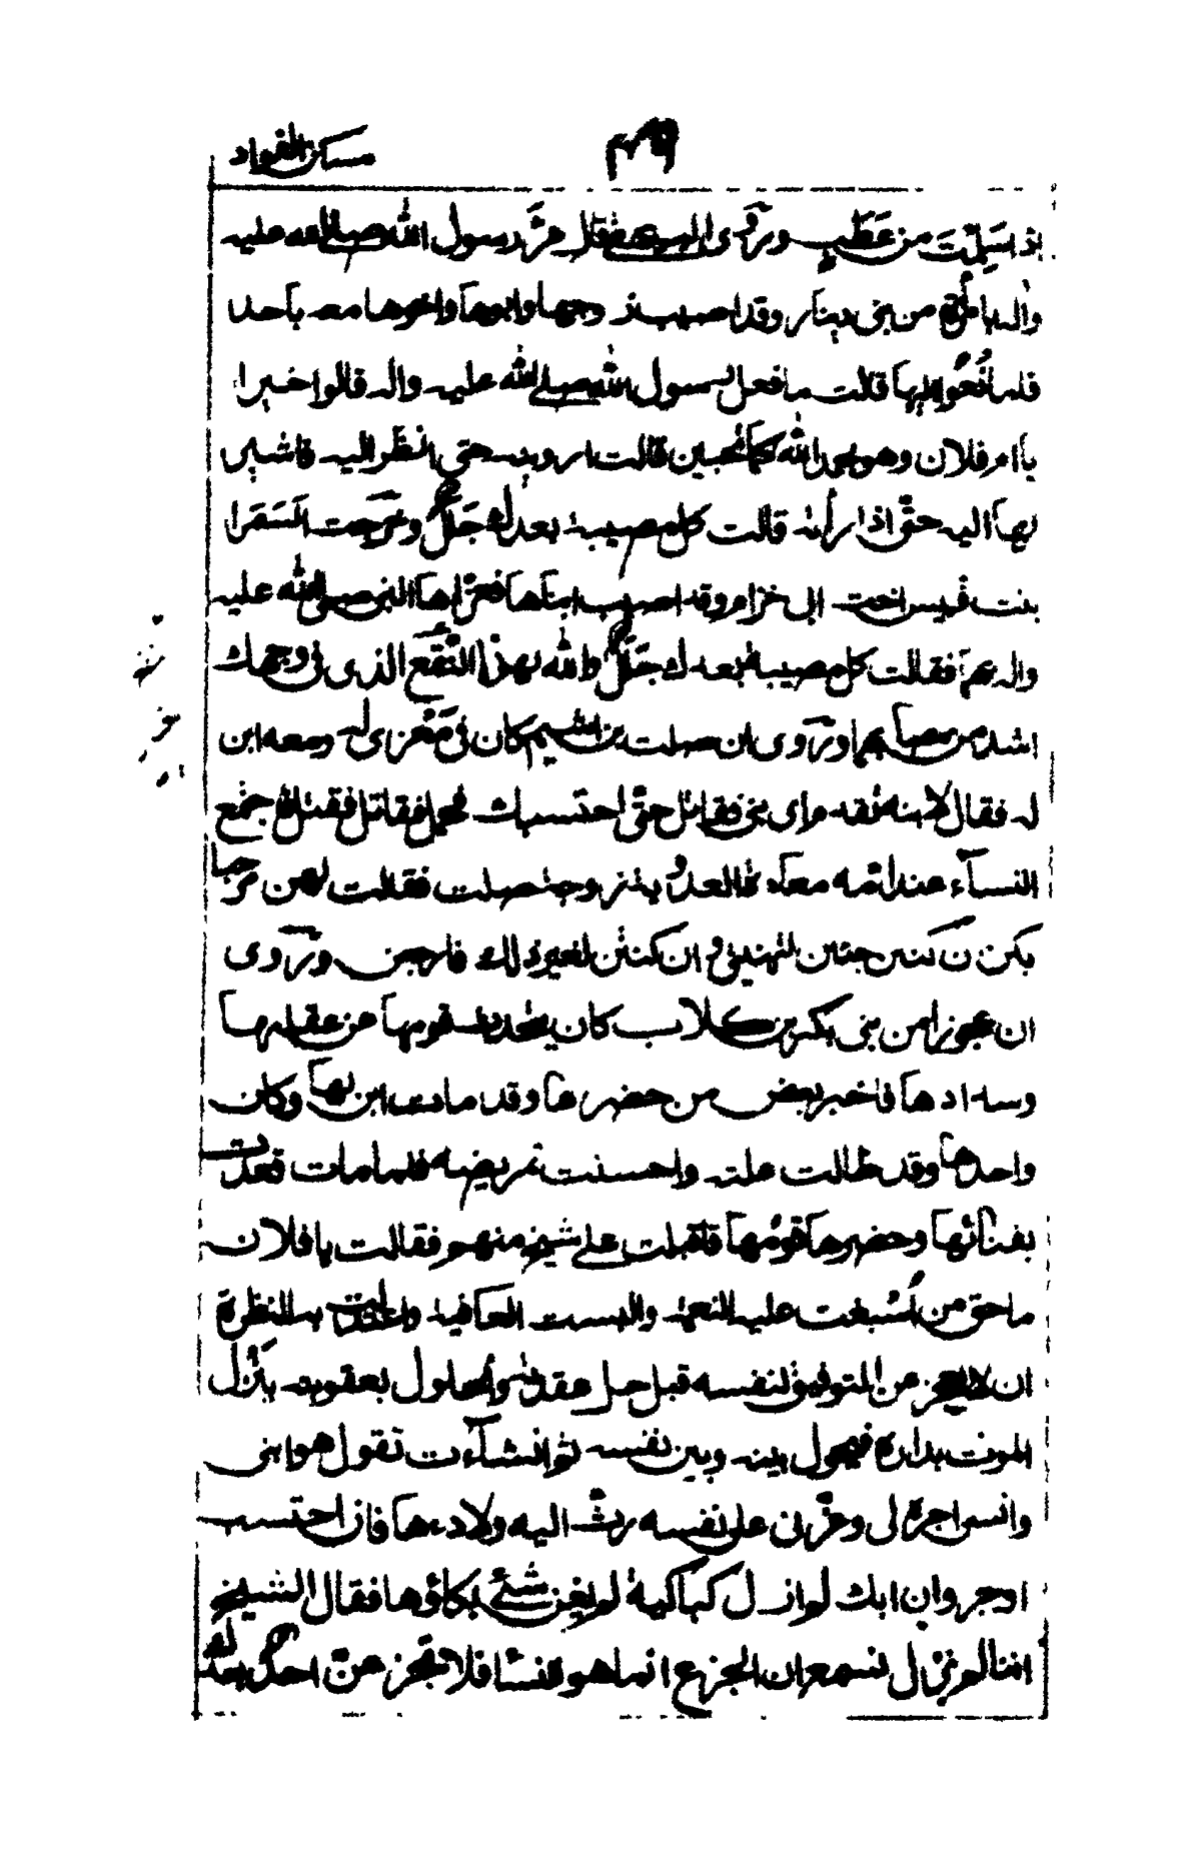 مسكن الفواد
اذ اسَلِمْتَ من عَطَبٍ وَرُوى البيهقى قال مرَّ رسول الله صلى الله عليه
واله بامرأة من بنى دينار وقد اصيب زوجها وابوها واخوها معه باحد
فلما نُعُوا اليها قالت ما فعل رسول الله صلى الله عليه واله قالوا خيرا
يا ام فلان وهو بحمد الله كما تحبين قالت ارونيه حتى انظر اليه فاشير
لها اليه حتّى اذا رأته قالت كل مصيبة بعدك جَلَلٌ وخرجت السَمَرا
بنت قيس اخت ابى حزام وقد اصيب ابناها فعزّاها النبى صلى الله عليه
واله بهما فقالت كل مصيبة بعدك جَلَلٌ والله لهذا النَّقْعُ الذى فى وجهك
اشد من مصابهما ورُوى ان صلت بن اشيم كان فى مَغْزى له ومعه ابن
له فقال لابنه تقدم اى بنى فقاتل حتّى احتسبك فحمل فقاتل فقتل فاجتمع
النسآء عند امه معاذة العدوية زوجة صلت فقالت لهن مرحبا
بكن ان كنتن جئتن لتهنئننى و ان كنتن لغير ذلك فارجعن ورُوى
ان عجوزا من بنى بكر بن كلاب كان يتحدث قومها عن عقلها
وسدادها فاخبر بعض من حضرها وقد مات ابن لها وكان
واحدها وقد طالت علته واحسنت تمريضه فلما مات قعدت
بفنائها وحضرها قومُها فاقبلت على شيخ منهم فقالت يا فلان
ما حق من اُسْبغت عليه النعمة والبست العافية واعتدلت به النظرة
ان لا يعجز عن التوفيق لنفسه قبل حل عقدته والحلول بعقوبه يَنْزل
الموت بداره فيحول بينه وبين نفسه ثم انشأت تقول هو ابنى
وانسى اجره لى وعزّنى على نفسه ربٌّ اليه ولادها فان احتسب
اوجر وان ابك لم اكن ل كباكية لم يغن شئ بكاؤها فقال الشيخ
اننا لم نزل نسمع ان الجزع انما هو للنسا فلا تجزعن احد بعدك